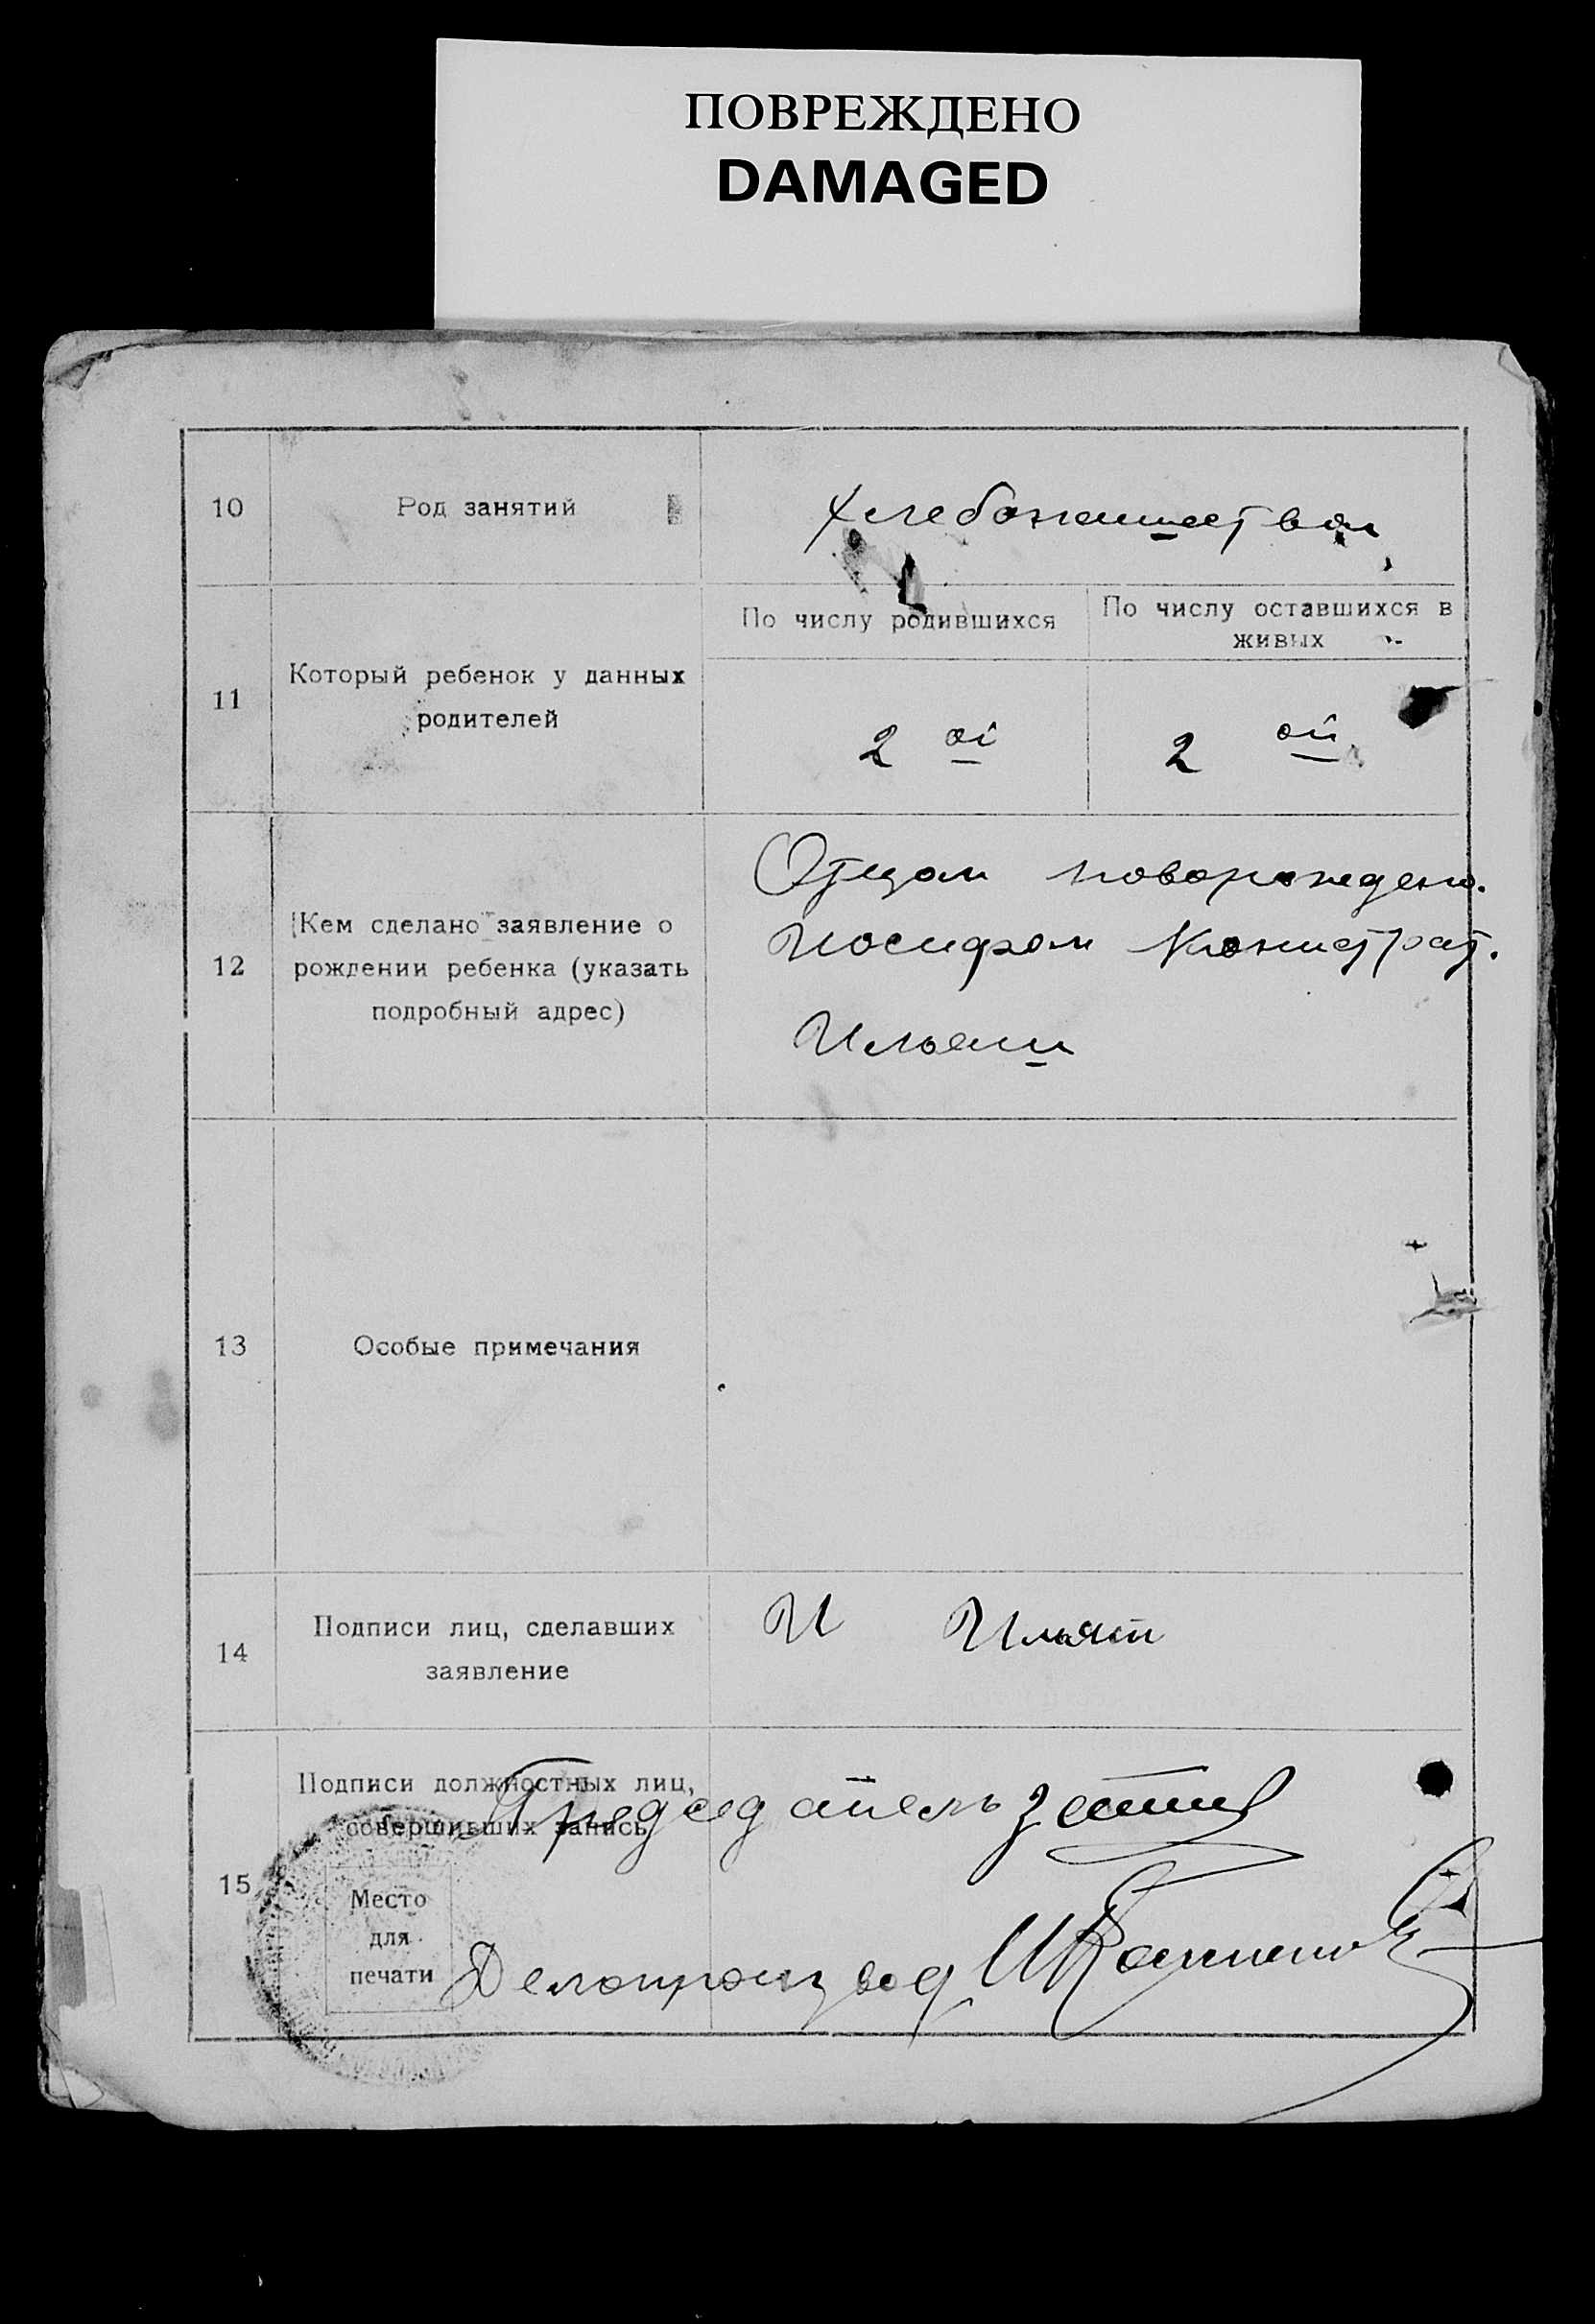 ПОВРЕЖДЕНО
DAMAGED
10
Род занятий
Хлебопашеством
11
Который ребенок у данных
родителей
По числу родившихся
По числу оставшихся в
живых
2 ой
2 ой
12
Кем сделано заявление о
рождении ребенка (указать
подробный адрес)
Отцом новорожден.
Иосифом
Ильяш
13
Особые примечания
14
Подписи лиц, сделавших
заявление
И Ильяш
15
Подписи должностных лиц,
совершивших запись
Место
для
печати
Председатель
Делопроизвод